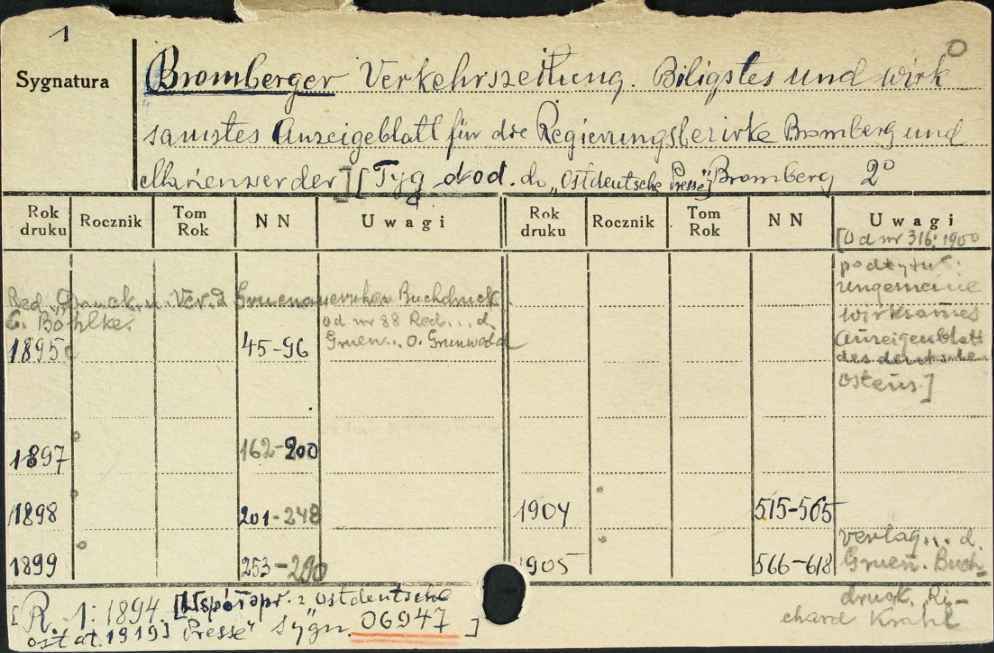 1
Sygnatura
Bromberger Verkehrszeitung. Biligstes und wirk
samstes Anzeigeblatt für die Regierungsbezirke Bromberg und
Marienwerder][Tyg. dod. do "Ostdeutsche Presse"] Bromberg 2°
Rok druku Rocznik Tom Rok NN Uwagi Rok druku Rocznik Tom Rok NN Uwagi
[Od nr 316: 1900
podtytuł:
ungemeine
wirksames
Anzeigenblatt
des deutschen
Ostens.]
Red. Druck u. Ver. d. Gruenauerschen Buchdruck
C. Böhlke.
od nr 88 Red... d.
Gruen.. O. Grunwald
1895 45-96
1897 162-200
1898 201-248 1904 515-565
1899 253-290 1905 566-618
Verlag... d.
Gruen. Buch-
druck. Ri-
chard Krahl
[R. 1: 1894. [Współopr. z "Ostdeutsche
ost. at. 1919] Presse" Sygn. 06947 ]